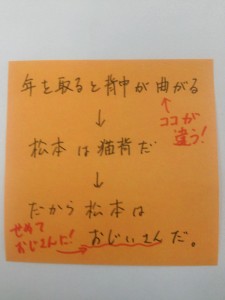 年を取ると背中が曲がる
↑
ココが
違う!
↓
松本は猫背だ
↓
だから松本は
おじいさんだ。
せめて
おじさんだ!